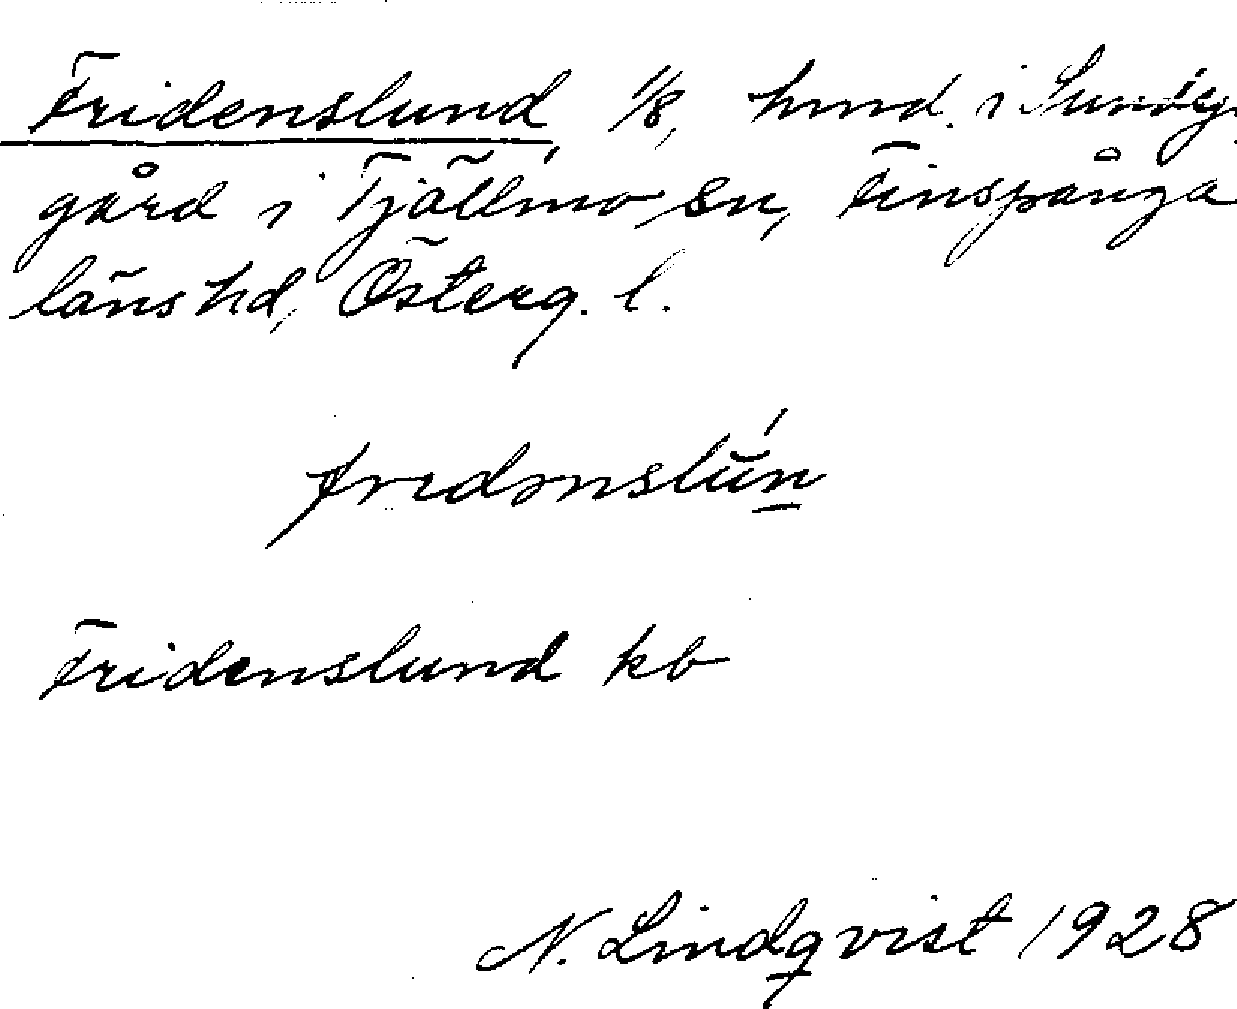 Fridenslund, 1/8, hmd. i Sundby-
gård i Tjällmo sn, Finspånga
läns hd, Österg. l.
fridənslún
Fridenslund kb
N. Lindqvist 1928